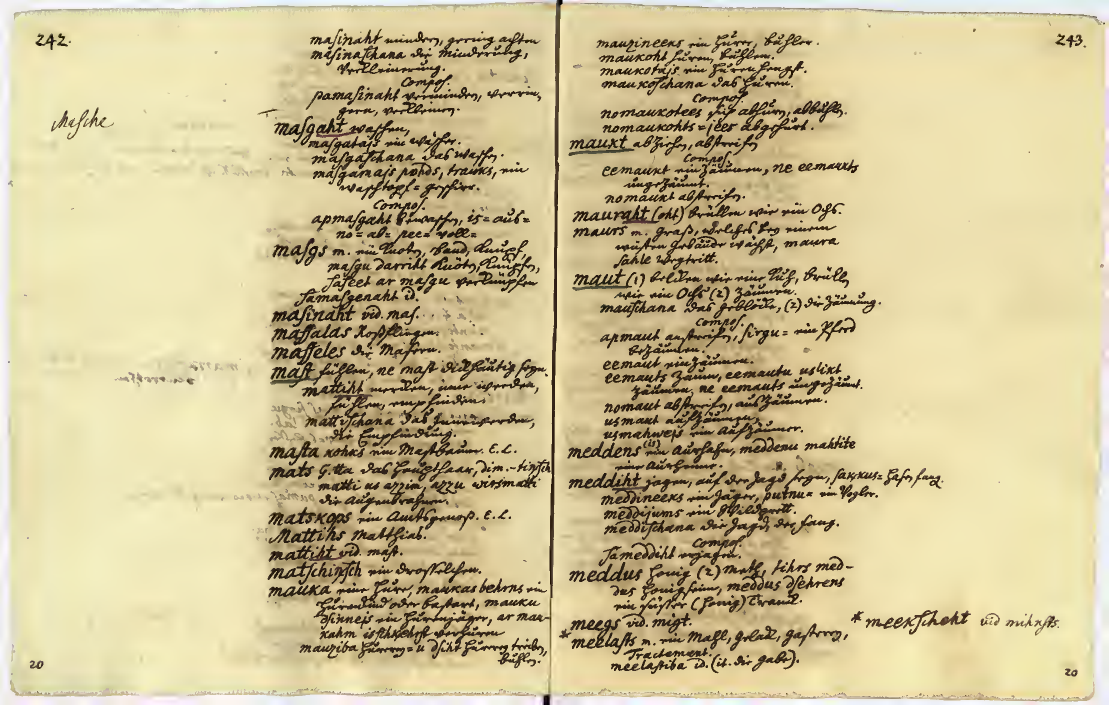 242.
masinaht mindern, gering achten
masinaschana die Minderung,
Verkleinerung.
Compos.
pamasinaht vermindern, verrin-
gern, verkleinern.
Masche
masgaht waschen,
masgatajs ein Wäscher.
masgaschana das Waschen.
masgamajs pohds, trauks, ein
waschtopf = geschirr.
Compos.
apmasgaht bewaschen, is= aus=
no= ab= pee= voll=
masgs m. ein Knoten, Band, Knüpf
masgu darriht Knöten, Knüpfen,
saseet ar masgu verknüpfen
samasgenaht id.
masinaht vid. mas.
massalas Roßfliegen.
masseles die Masern.
mast fühlen, ne mast dickhäutig seyn.
mattiht merken, inne werden,
fühlen, empfinden.
mattischana das Innewerden,
die Empfindung.
masta kohks ein Mastbaum. E.L.
mats G. tta das Haupthaar, dim. -tinsch
matti us azzim, azzu wirsmatti
die Augenbrahnen.
matskops ein Amtsgenoß. E.L.
Mattihs Matthias.
mattiht vid. mast.
matschinsch ein Drosselchen.
mauka eine Hure, maukas behrns ein
Hurenkind oder Bastart, mauku
dsinnejs ein Hurenjäger, ar mau-
kahm verhuren
mauziba Hurerey = u dsiht Hurerey treiben,
buhlen.
20
243.
mauzineeks ein Hurer, Buhler.
maukoht huren, buhlen.
maukotajs ein Hurenhengst.
maukoschana das Huren.
Compos.
nomaukotees sich abhuren, abbuhlen.
nomaukohts = jees abgehurt.
maukt abziehen, abstreifen
Compos.
eemaukt einzäumen, ne eemaukts
ungezäumt.
nomaukt abstreifen.
mauraht (oht) brüllen wie ein Ochs.
maurs m. Graß, welches bey einem
wüsten Gebäude wächst, maura
sahle Wegtritt.
maut (1) belken wie eine Kuh, brüllen
wie ein Ochs (2) zäumen.
mauschana das Geblöcke, (2) die Zäumung.
Compos.
apmaut anstreifen, sirgu = ein Pferd
bezäumen.
eemaut einzäumen.
eemauts Zaum, eemautu uslikt
zäumen, ne eemauts ungezäumt.
nomaut abstreifen, auszäumen.
usmaut aufzäumen,
usmahwejs ein Aufzäumer.
meddens ein Aurhahn, meddenu mahtite
eine Aurhenne.
meddiht jagen, auf der Jagd seyn, sakkus = Hasen fang.
meddineeks ein Jäger, putnu = ein Vogler.
meddijums ein Wildprett.
meddischana die Jagd, der Fang.
Compos.
sameddiht erjagen.
meddus Honig (2) Meth, tihrs med-
dus Honigseim, meddus dsehrens
ein süsser (Honig) Tranck.
meegs vid. migt.
* meelasts m. ein Mahl, Gelack, Gasterey,
Tractement.
meelastiba id. (it. die Gabe).
* meekscheht vid mihksts.
20